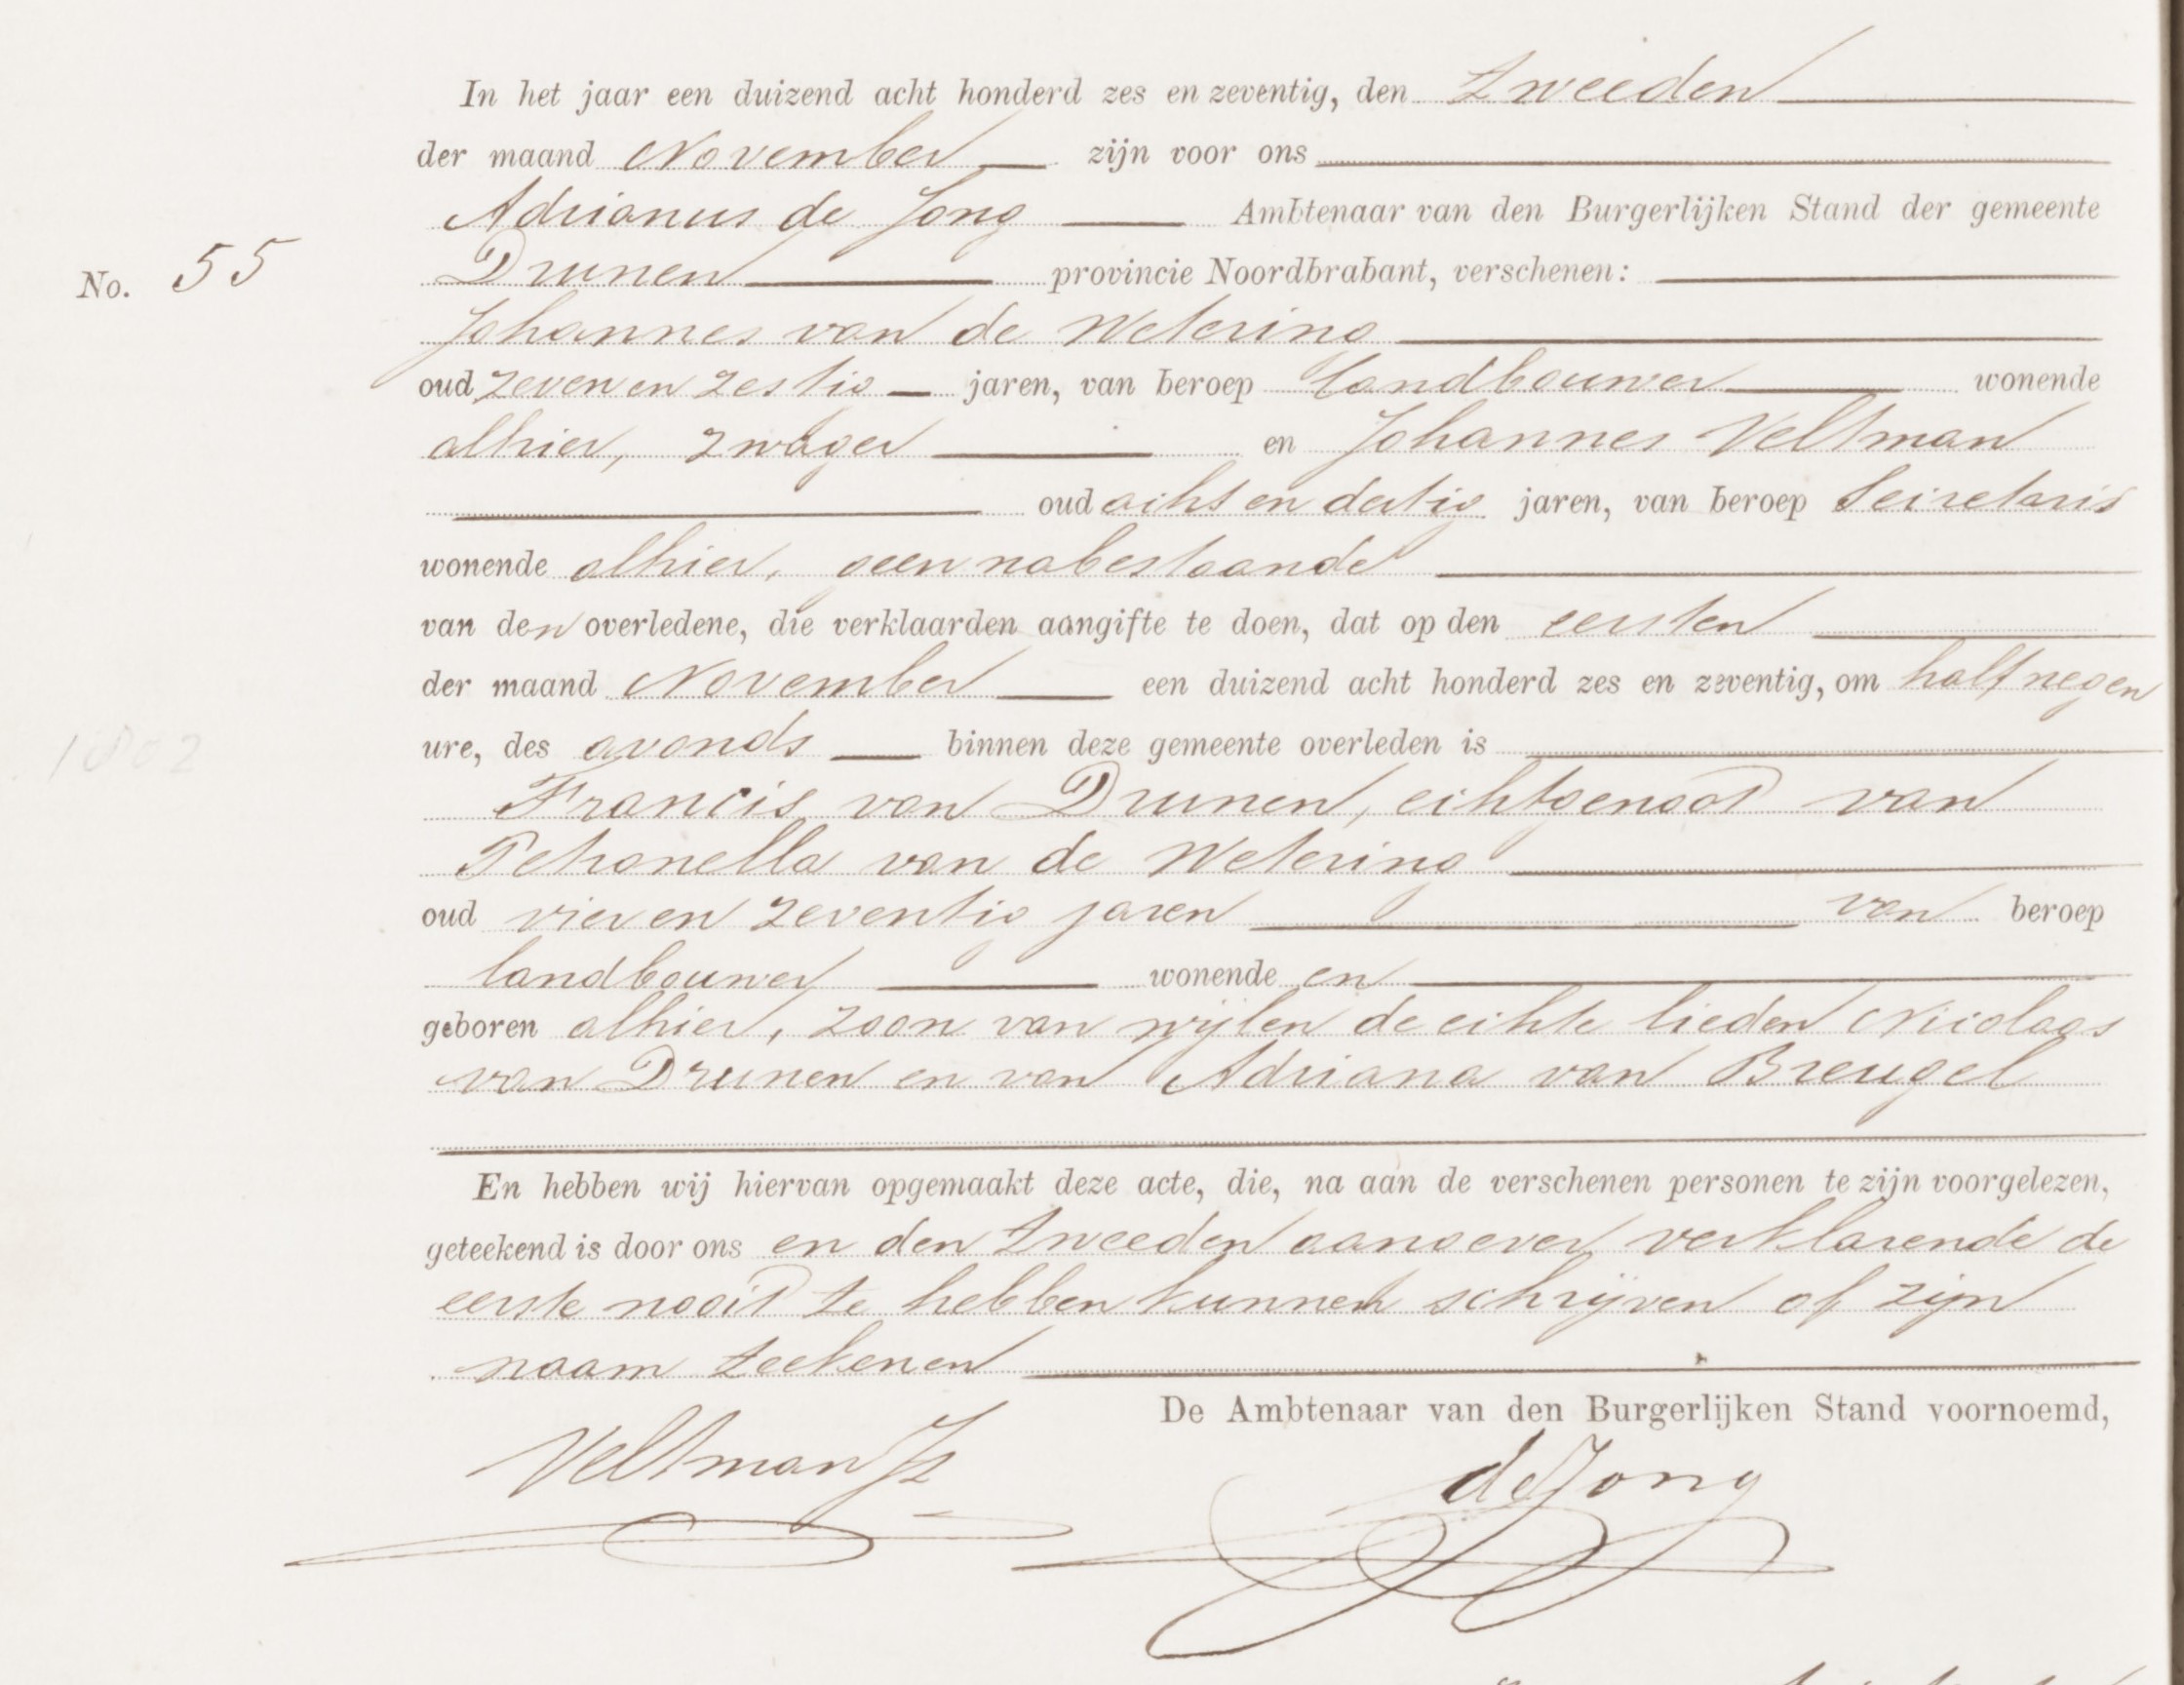 In het jaar een duizend acht honderd zes en zeventig, den tweeden
der maand November zijn voor ons
Adrianus de Jong Ambtenaar van den Burgerlijken Stand der gemeente
No. 55 Drunen provincie Noordbrabant, verschenen:
Johannes van de Wetering
oud zeven en zestig jaren, van beroep landbouwer wonende
alhier, zwager en Johannes Veltman
oud acht en dertig jaren, van beroep Secretaris
wonende alhier, geen nabestaande
van den overledene, die verklaarden aangifte te doen, dat op den eersten
der maand November een duizend acht honderd zes en zeventig, om half negen
ure, des avonds binnen deze gemeente overleden is
1802
Francis van Drunen, echtgenoot van
Petronella van de Wetering
oud vier en zeventig jaren van beroep
landbouwer wonende en
geboren alhier, zoon van wijlen de echte lieden Nicolaas
van Drunen en van Adriana van Breugel
En hebben wij hiervan opgemaakt deze acte, die, na aan de verschenen personen te zijn voorgelezen,
geteekend is door ons en den tweeden aangever, verklarende de
eerste nooit te hebben kunnen schrijven of zijn
naam teekenen
De Ambtenaar van den Burgerlijken Stand voornoemd,
Veltman Jz
de Jong